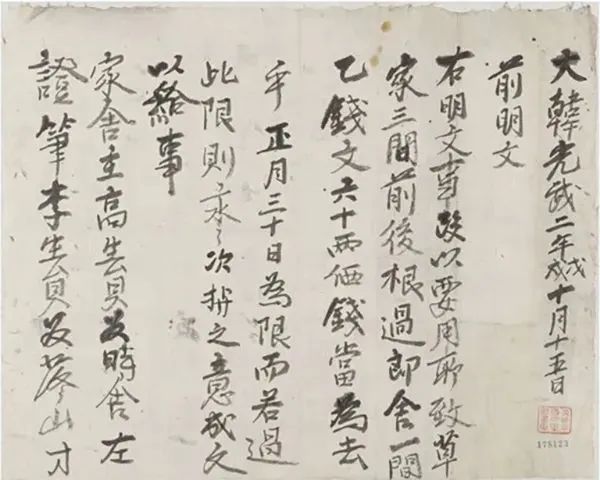 大韓光武二年戊戌十月十五日
前明文
右明文事段以要用所致草
家三間前後根過郎舍一間
乙錢文六十兩価錢當為去
乎正月三十日為限而若過
此限則永〻次持之意成文
以給事
家舍主高生員 時舍 左
證筆李生員 山寸
178123